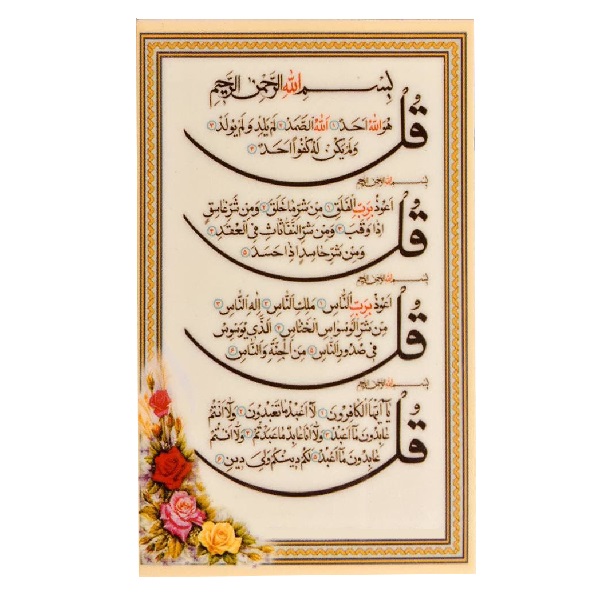 بِسْمِ اللهِ الرَّحْمٰنِ الرَّحِيمِ
قُل هُوَ اللهُ اَحَدٌ ۱ اَللهُ الصَّمَدُ ۲ لَم يَلِد وَ لَم يُولَد ۳
وَ لَم يَكُن لَهُ كُفُوًا اَحَدٌ ۴
بسم الله الرحمن الرحیم
قُل اَعُوذُ بِرَبِّ الْفَلَقِ ۱ مِن شَرِّ ما خَلَقَ ۲ وَ مِن شَرِّ غاسِقٍ
اِذا وَقَبَ ۳ وَ مِن شَرِّ النَّفّاثاتِ فِي الْعُقَدِ ۴
وَ مِن شَرِّ حاسِدٍ اِذا حَسَدَ ۵
بسم الله الرحمن الرحیم
قُل اَعُوذُ بِرَبِّ النّاسِ ۱ مَلِكِ النّاسِ ۲ اِلٰهِ النّاسِ ۳
مِن شَرِّ الْوَسْواسِ الْخَنّاسِ ۴ الَّذِي يُوَسْوِسُ
فِي صُدُورِ النّاسِ ۵ مِنَ الْجِنَّةِ وَ النّاسِ ۶
بسم الله الرحمن الرحیم
قُل يا اَيُّهَا الْكافِرُونَ ۱ لا اَعْبُدُ ما تَعْبُدُونَ ۲ وَلا اَنْتُمْ
عابِدُونَ ما اَعْبُدُ ۳ وَلا اَنا عابِدٌ ما عَبَدْتُمْ ۴ وَلا اَنْتُمْ
عابِدُونَ ما اَعْبُدُ ۵ لَكُمْ دِينُكُمْ وَلِيَ دِينِ ۶